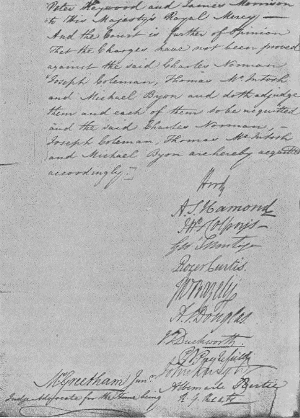 Peter Haywood and James Morrison
to His Majesty's Royal Mercy —
And the Court is further of Opinion
That the Charges have not been proved
against the said Charles Norman,
Joseph Coleman, Thomas McIntosh
and Michael Byon and doth adjudge
them and each of them to be acquitted
and the said Charles Norman, —
Joseph Coleman, Thomas McIntosh
and Michael Byon are hereby acquitted
accordingly —
Hood
A S Hamond
Roger Curtis.
A. Douglas
Duckworth
M Greetham Junr.
Judge Advocate for the Time being
Albemarle Bertie
R G Keats